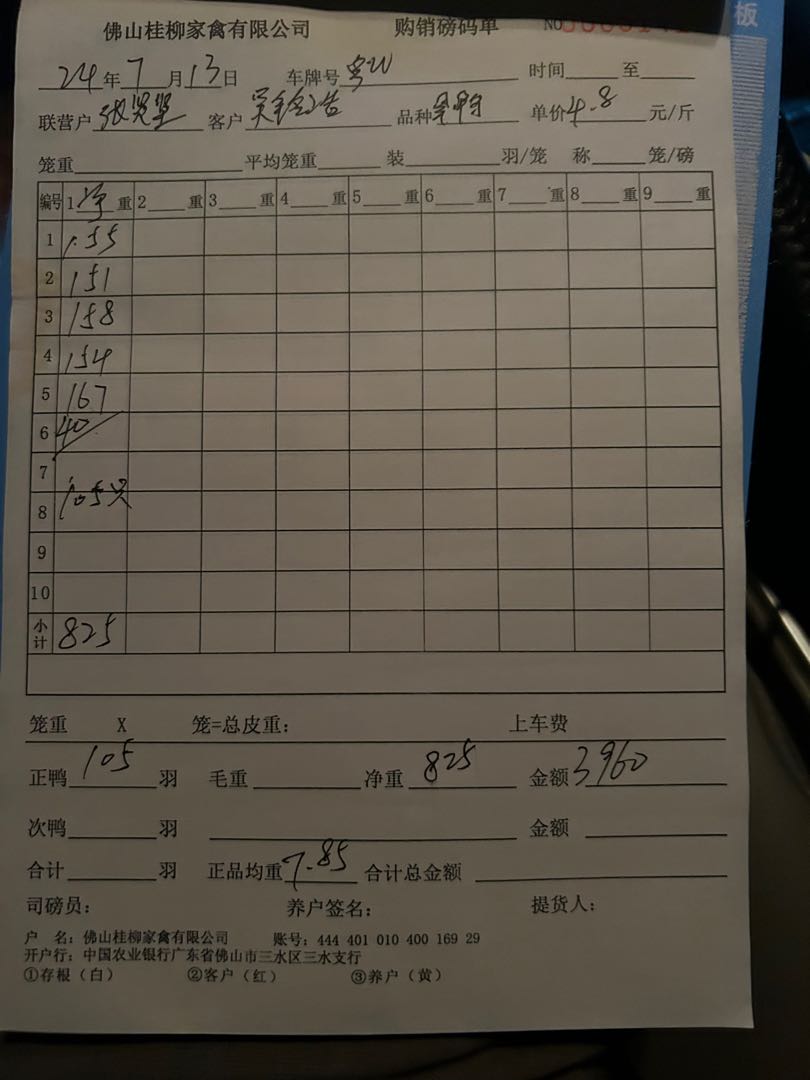 板
佛山桂柳家禽有限公司 购销磅码单 NO
24年7月13日 车牌号 时间 至
联营户 客户 品种 单价4.8元/斤
笼重 平均笼重 装 羽/笼 称 笼/磅
编号 1净重 2 重 3 重 4 重 5 重 6 重 7 重 8 重 9 重
1 155
2 151
3 158
4 154
5 167
6 40
7
8 105只
9
10
小计 825
笼重 X 笼=总皮重: 上车费
正鸭105羽 毛重 净重825 金额3960
次鸭 羽 金额
合计 羽 正品均重7.85 合计总金额
司磅员: 养户签名: 提货人:
户 名: 佛山桂柳家禽有限公司 账号: 444 401 010 400 169 29
开户行: 中国农业银行广东省佛山市三水区三水支行
①存根(白) ②客户(红) ③养户(黄)